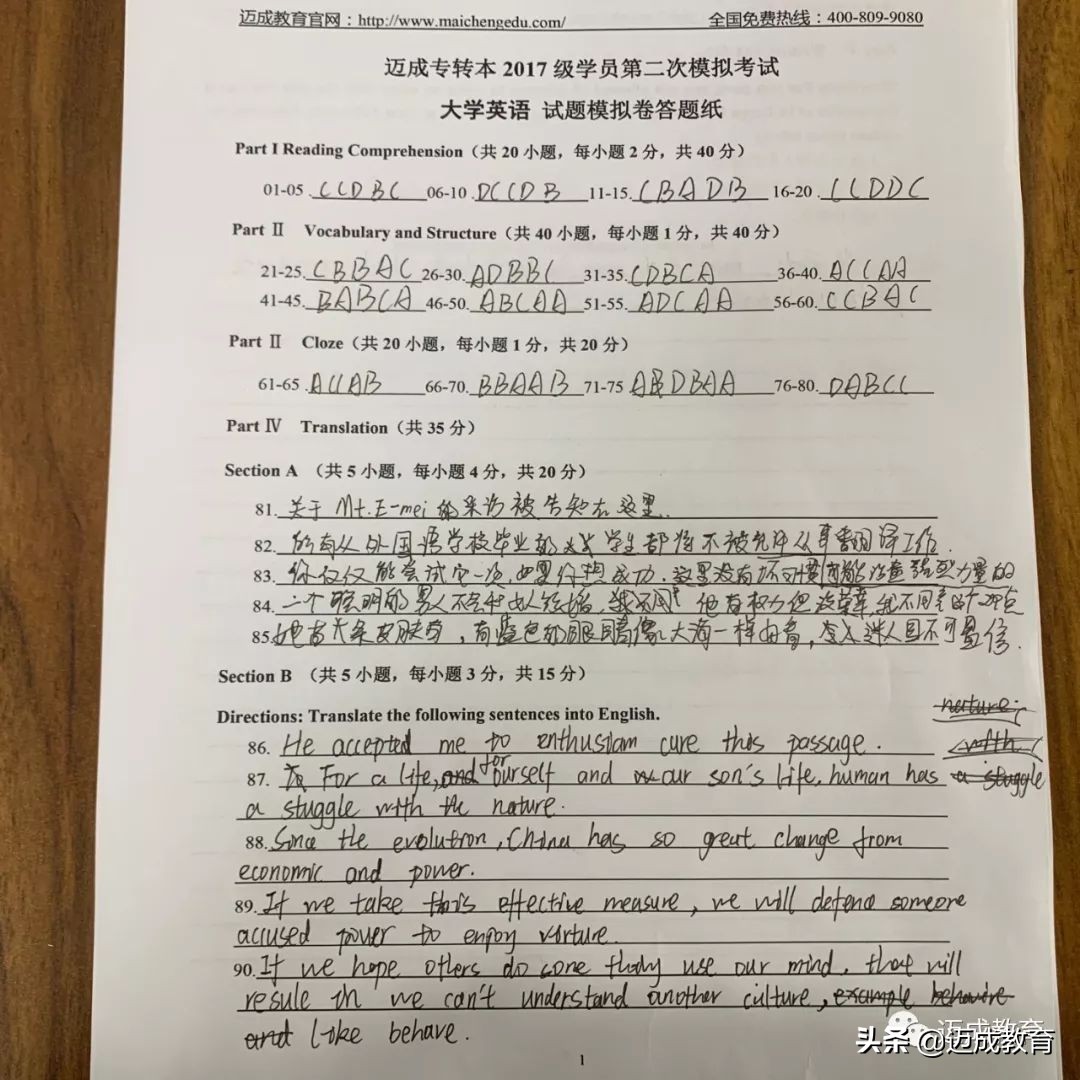 迈成教育官网：http://www.maichengedu.com/ 全国免费热线：400-809-9080
迈成专转本 2017 级学员第二次模拟考试
大学英语 试题模拟卷答题纸
Part I Reading Comprehension（共 20 小题，每小题 2 分，共 40 分）
01-05 . CCDBC 06-10 . DCCDB 11-15. CBADB 16-20 . CCDDC
Part Ⅱ Vocabulary and Structure（共 40 小题，每小题 1 分，共 40 分）
21-25. CBBAC 26-30. ADBBC 31-35. CDBCA 36-40. ACCAA
41-45. BABCA 46-50. ABCAA 51-55. ADCAA 56-60. CCBAC
Part Ⅱ Cloze（共 20 小题，每小题 1 分，共 20 分）
61-65 . ACCAB 66-70. BBAAB 71-75 DBAA 76-80. DABCC
Part Ⅳ Translation（共 35 分）
Section A （共 5 小题，每小题 4 分，共 20 分）
81. 关于 Mt.E-mei 的采访被告知在这里.
82. 所有从外国语学校毕业的 学生都将不被允许从事翻译工作.
83. 你仅仅能尝试它一次，如果你想成功. 这里没有坏习惯 力量的
84. 一个聪明的男人不会和女人结婚， 他有权力但没荣幸，我不同意 观点
85. 她有 皮肤 ，有蓝色的眼睛像大海一样 ， 迷人 不可置信.
Section B （共 5 小题，每小题 3 分，共 15 分）
Directions: Translate the following sentences into English. nature,
86. He accepted me to enthusiam cure this passage. with
87. For a life, and for ourself and our son's life, human has a stuggle
a stuggle with the nature.
88. Since the evolution, China has so great change from
economic and power.
89. If we take this effective measure, we will defence someone
accused power to enjoy virture.
90. If we hope others do some thing use our mind, that will
resule in we can't understand another culture, example behavire
and like behave.
1
迈成教育
头条 @迈成教育